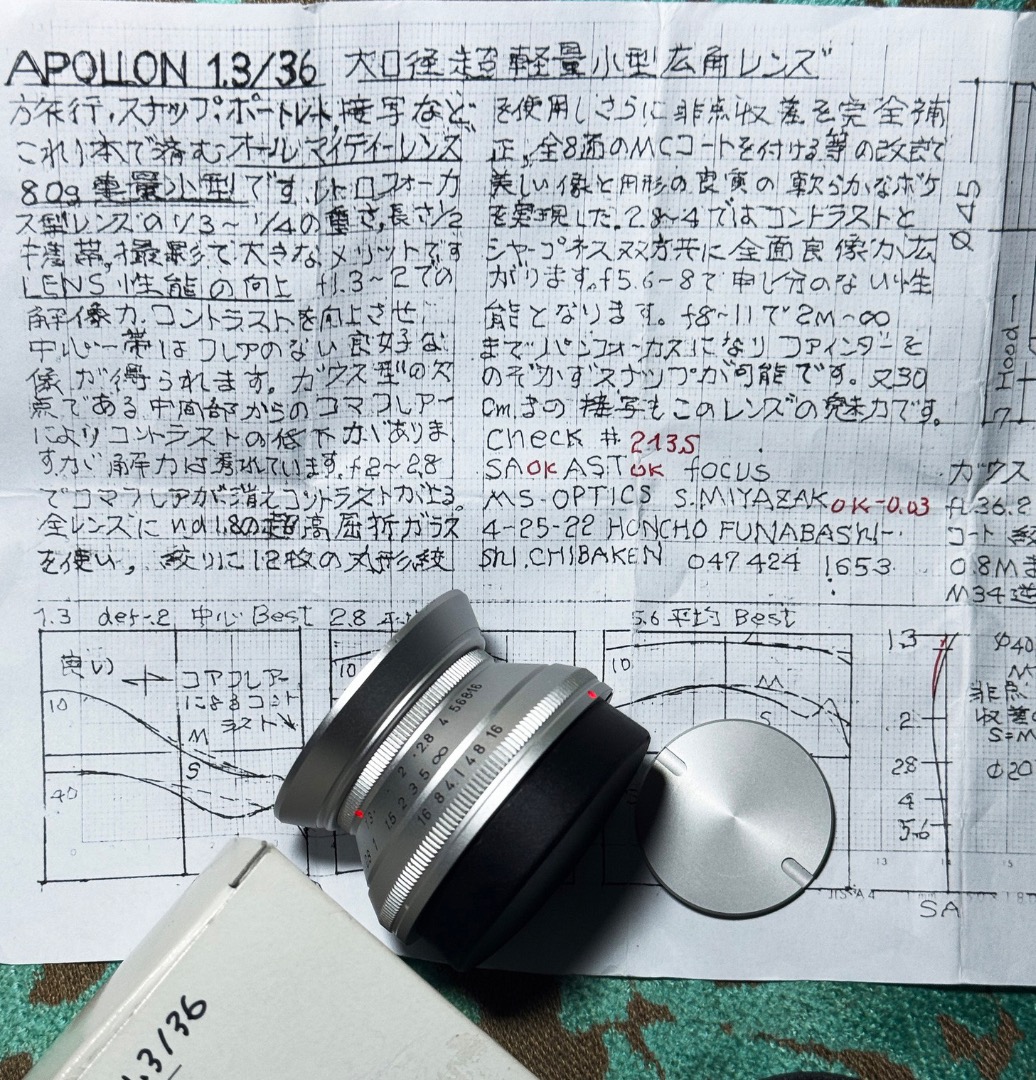 APOLLON 1.3/36 大口径超軽量小型広角レンズ
旅行,スナップ,ポートレート,接写など
これ1本で済むオールマイティーレンズ
80g 重量小型です.レトロフォーカ
ス型レンズの1/3~1/4の重さ,長さ1/2
携帯,撮影で大きなメリットです
LENS 性能の向上 f1.3~2での
解像力.コントラストを向上させ
中心一帯はフレアのない良好な
像が得られます。ガウス型の欠
点である中間部からのコマフレアー
によりコントラストの低下がありま
すが解像力は秀れています.f2~2.8
でコマフレアが消えコントラストが上る。
全レンズにnd1.8の超高屈折ガラス
を使い,絞りに12枚の丸形絞
を使用しさらに非点収差を完全補
正,全8面のMCコートを付ける等の改良で
美しい像と円形の良質の軟らかなボケ
を実現した.2.8~4ではコントラストと
シャープネス双方共に全面良像が広
がります.f5.6-8で申し分のない性
能となります。f8~11で2M~∞
までパンフォーカスになりファインダーを
のぞかずスナップが可能です。又30
cmきの接写もこのレンズの魅力です。
check # 2135
SA OK AST OK focus
MS-OPTICS S.MIYAZAK OK-0.03
4-25-22 HONCHO FUNABASHI-
SHI.CHIBAKEN 047 424 1653
φ45
Hood
ガウス
fL36.2
コート
0.8M
M34逆
1.3 der-.2 中心 Best
2.8
5.6 平均 Best
良い
コアフレアー
によるコント
ラスト
10
M
S
40
10
10
M
S
1.3
.2
2.8
4
5.6
SA
φ40
M
非点
収差
S=M
φ20
13
14
15
JIS A4
1.3 2 2.8 4 5.6 8 16
0.8 1 1.5 2 3 5 ∞
16 8 4 1 4 8 16
1.3/36